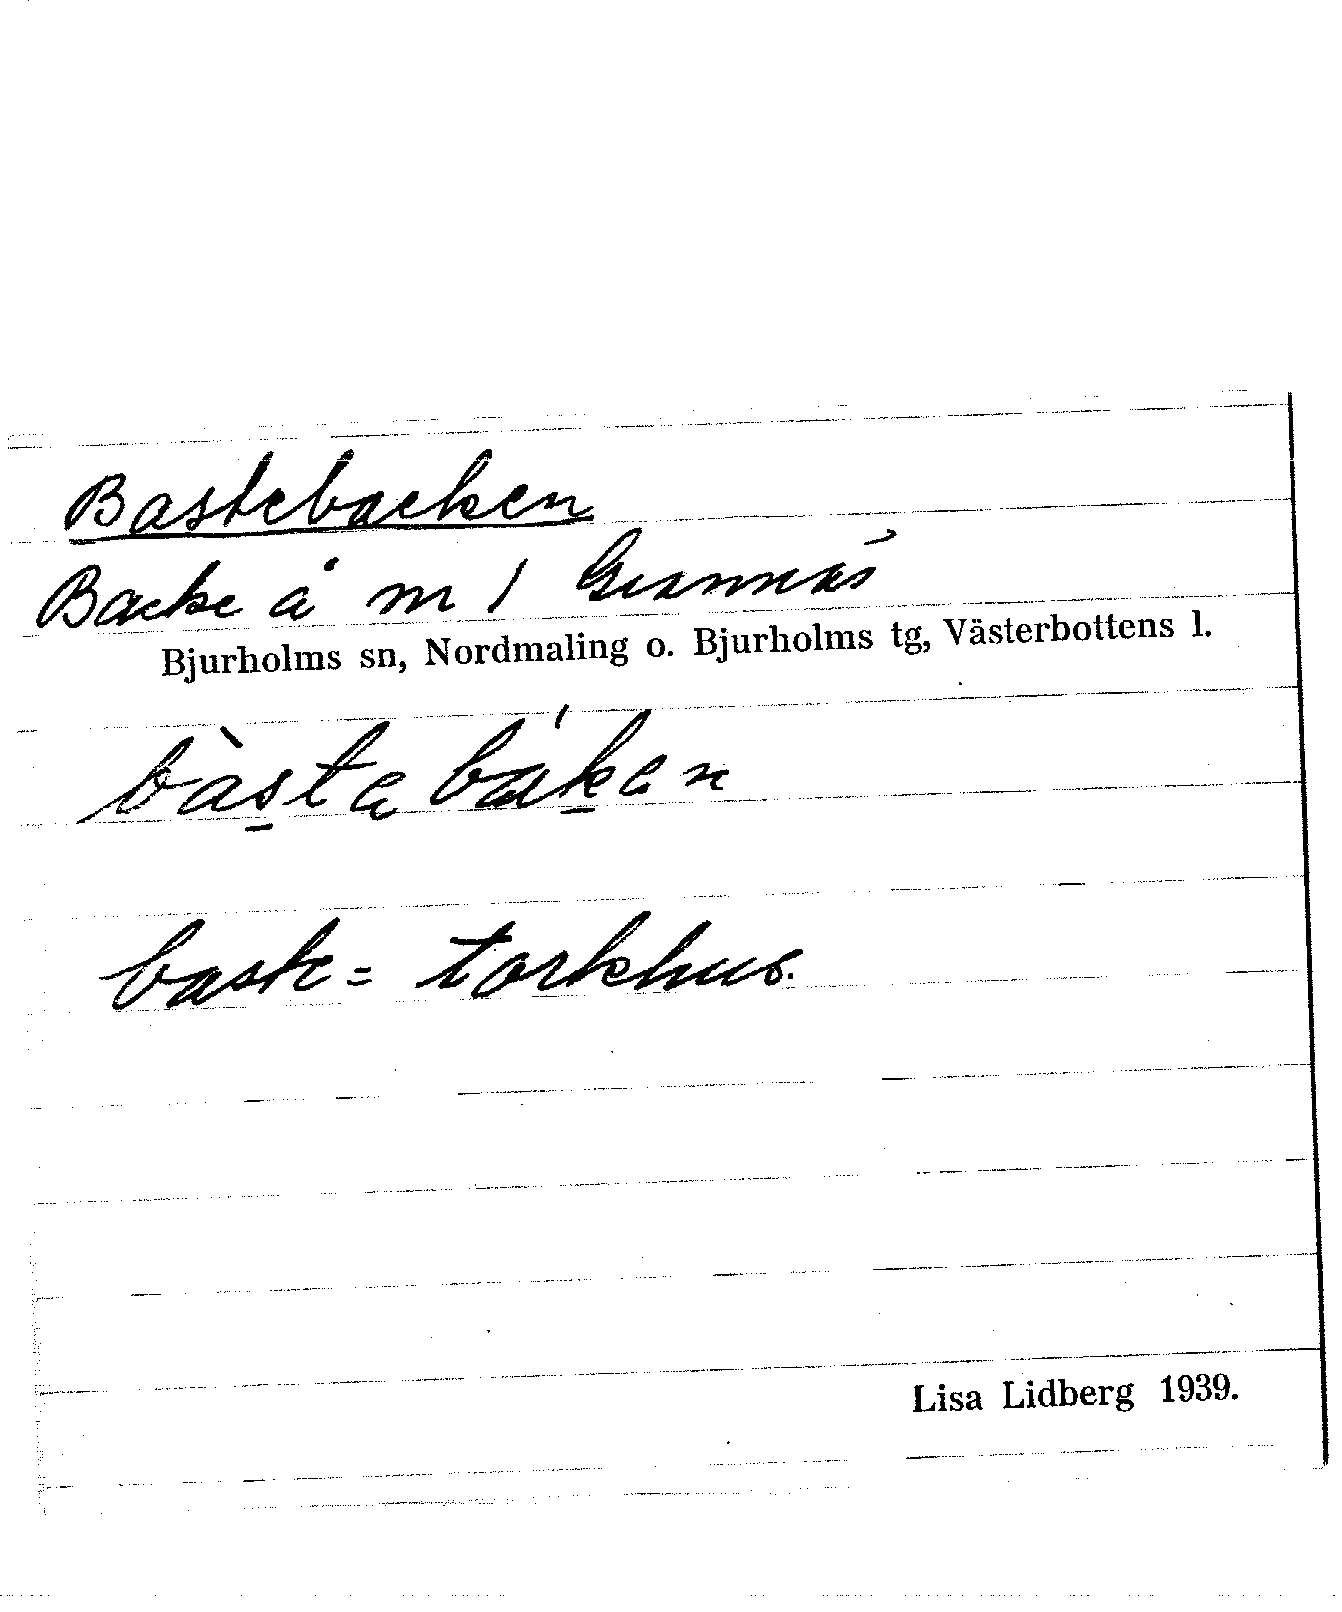 Bastebacken
Backe å m 1 Grannäs
Bjurholms sn, Nordmaling o. Bjurholms tg, Västerbottens l.
bàstebáken
baste = torkhus.
Lisa Lidberg 1939.